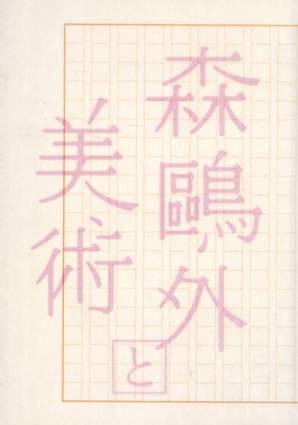 森鷗外と
美術